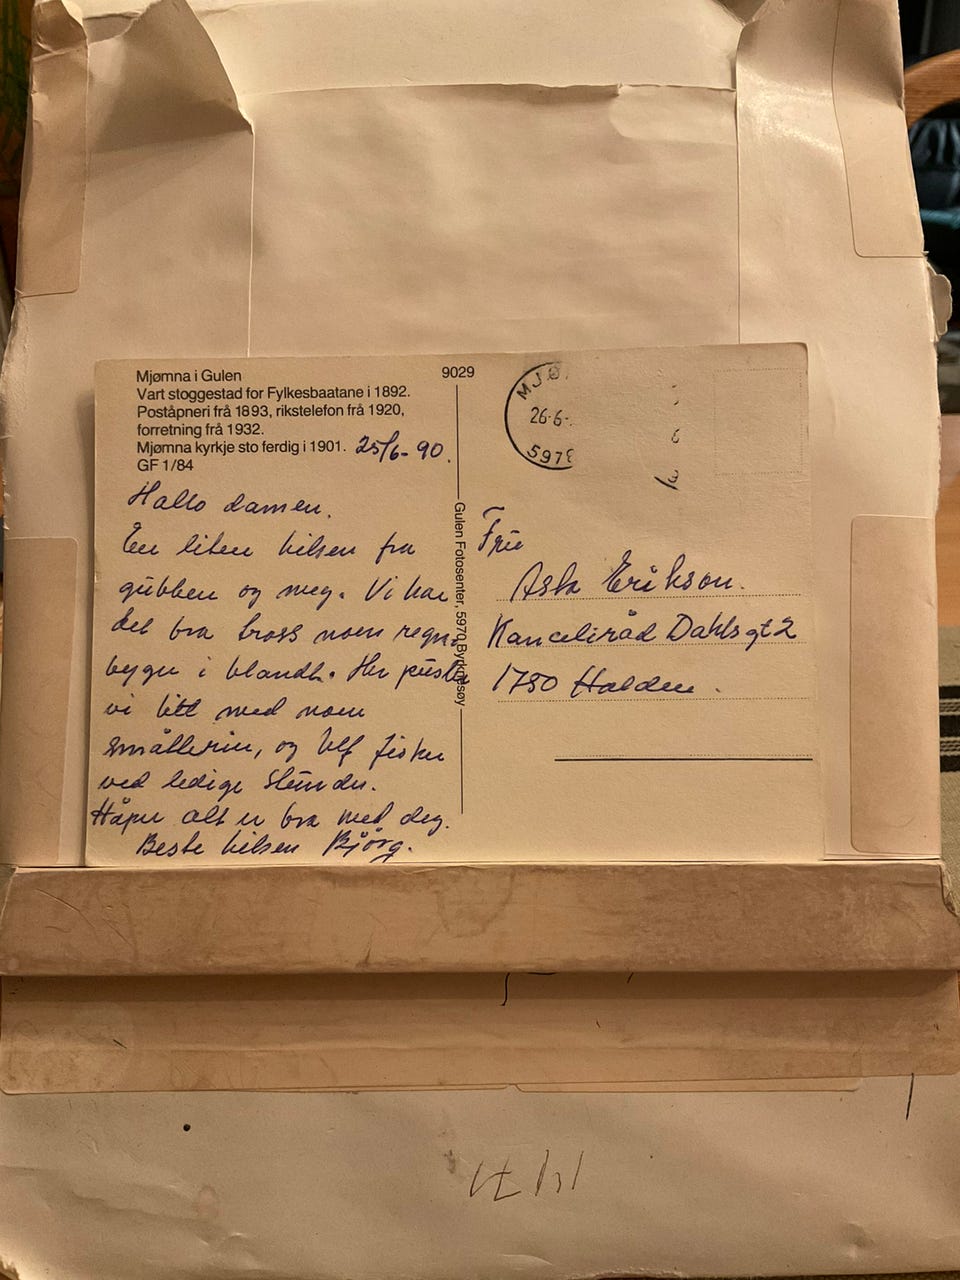 Mjømna i Gulen
Vart stoggestad for Fylkesbaatane i 1892.
Poståpneri frå 1893, rikstelefon frå 1920,
forretning frå 1932.
Mjømna kyrkje sto ferdig i 1901.
GF 1/84
25/6-90.
Hallo damen.
En liten hilsen fra
gubben og meg. Vi har
det bra tross noen regn
byger i blandt. Her pusler
vi litt med noen
småtterier, og Ulf fisker
ved ledige stunder.
Håper alt er bra med deg.
Beste hilsen Bjørg.
9029
Gulen Fotosenter, 5970 Byrknesøy
MJØ
26-6-
5978
Fru
Erikson.
Kanceliråd Dahlsgt 2
1750 Halden.